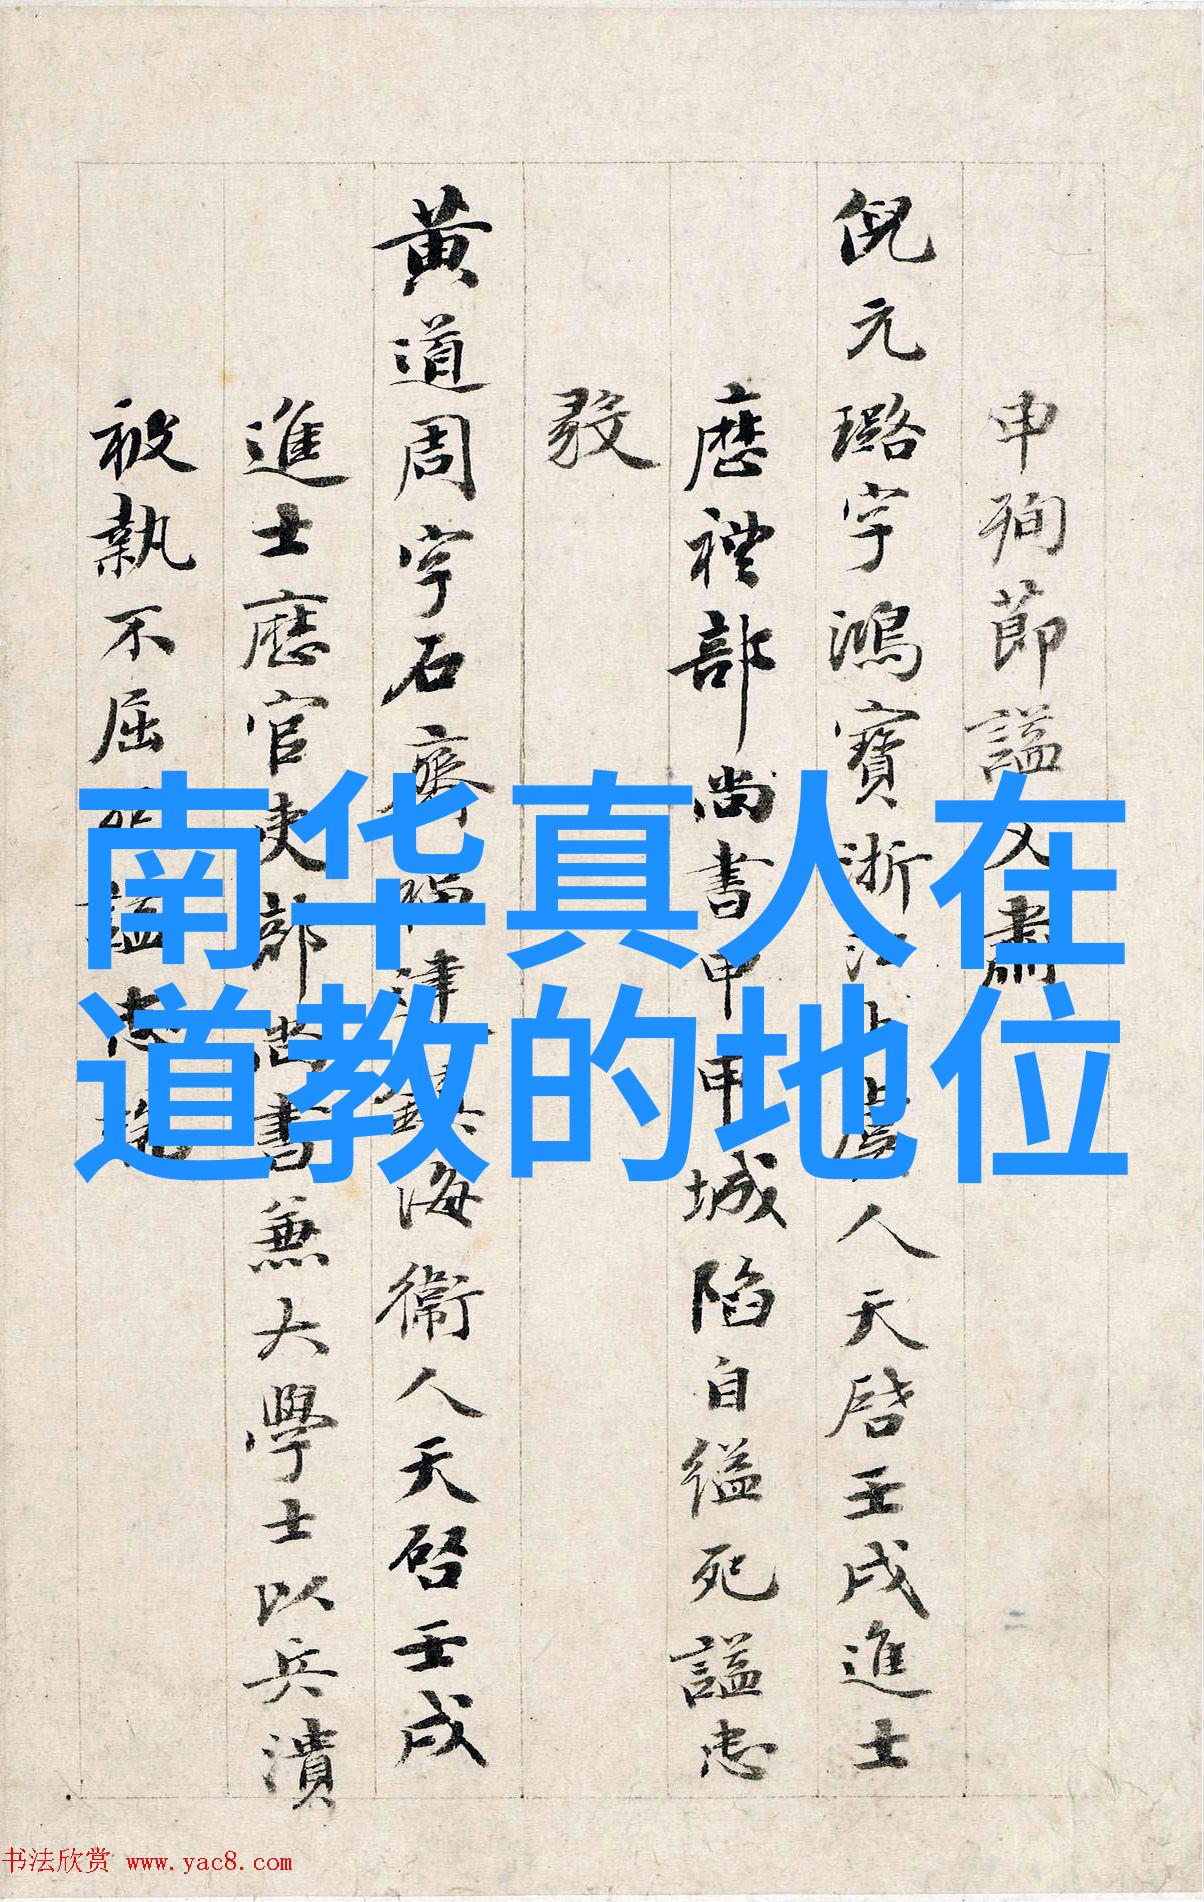 申殉節謚文肅
倪元璐字鴻寶浙江上虞人天啓壬戌進士
歷禮部尚書甲申城陷自縊死謚忠
毅
黄道周字石齋福建鎮海衛人天啓壬戌
進士歷官吏部尚書兼大學士以兵潰
被執不屈死謚忠烈
南华真人在
道教的地位
书法欣赏 www.yac8.com